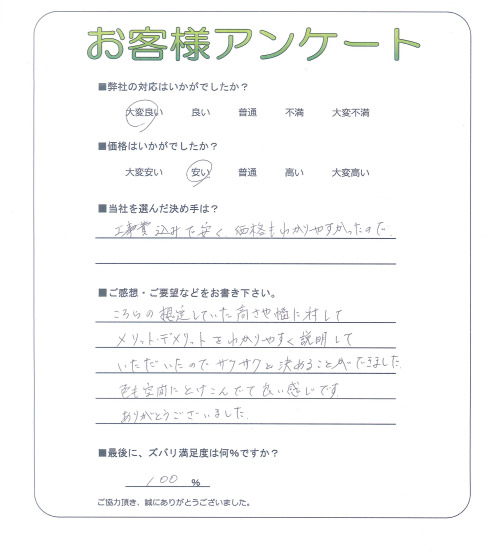 お客様アンケート
■弊社の対応はいかがでしたか？
大変良い 良い 普通 不満 大変不満
■価格はいかがでしたか？
大変安い 安い 普通 高い 大変高い
■当社を選んだ決め手は？
工事費込みで安く、価格もわかりやすかったので.
■ご感想・ご要望などをお書き下さい。
こちらの想定していた高さや幅に対して
メリット・デメリットをわかりやすく説明して
いただいたのでサクサクと決めることができました.
色も空間にとけこんでて良い感じです.
ありがとうございました.
■最後に、ズバリ満足度は何%ですか？
100 %
ご協力頂き、誠にありがとうございました。